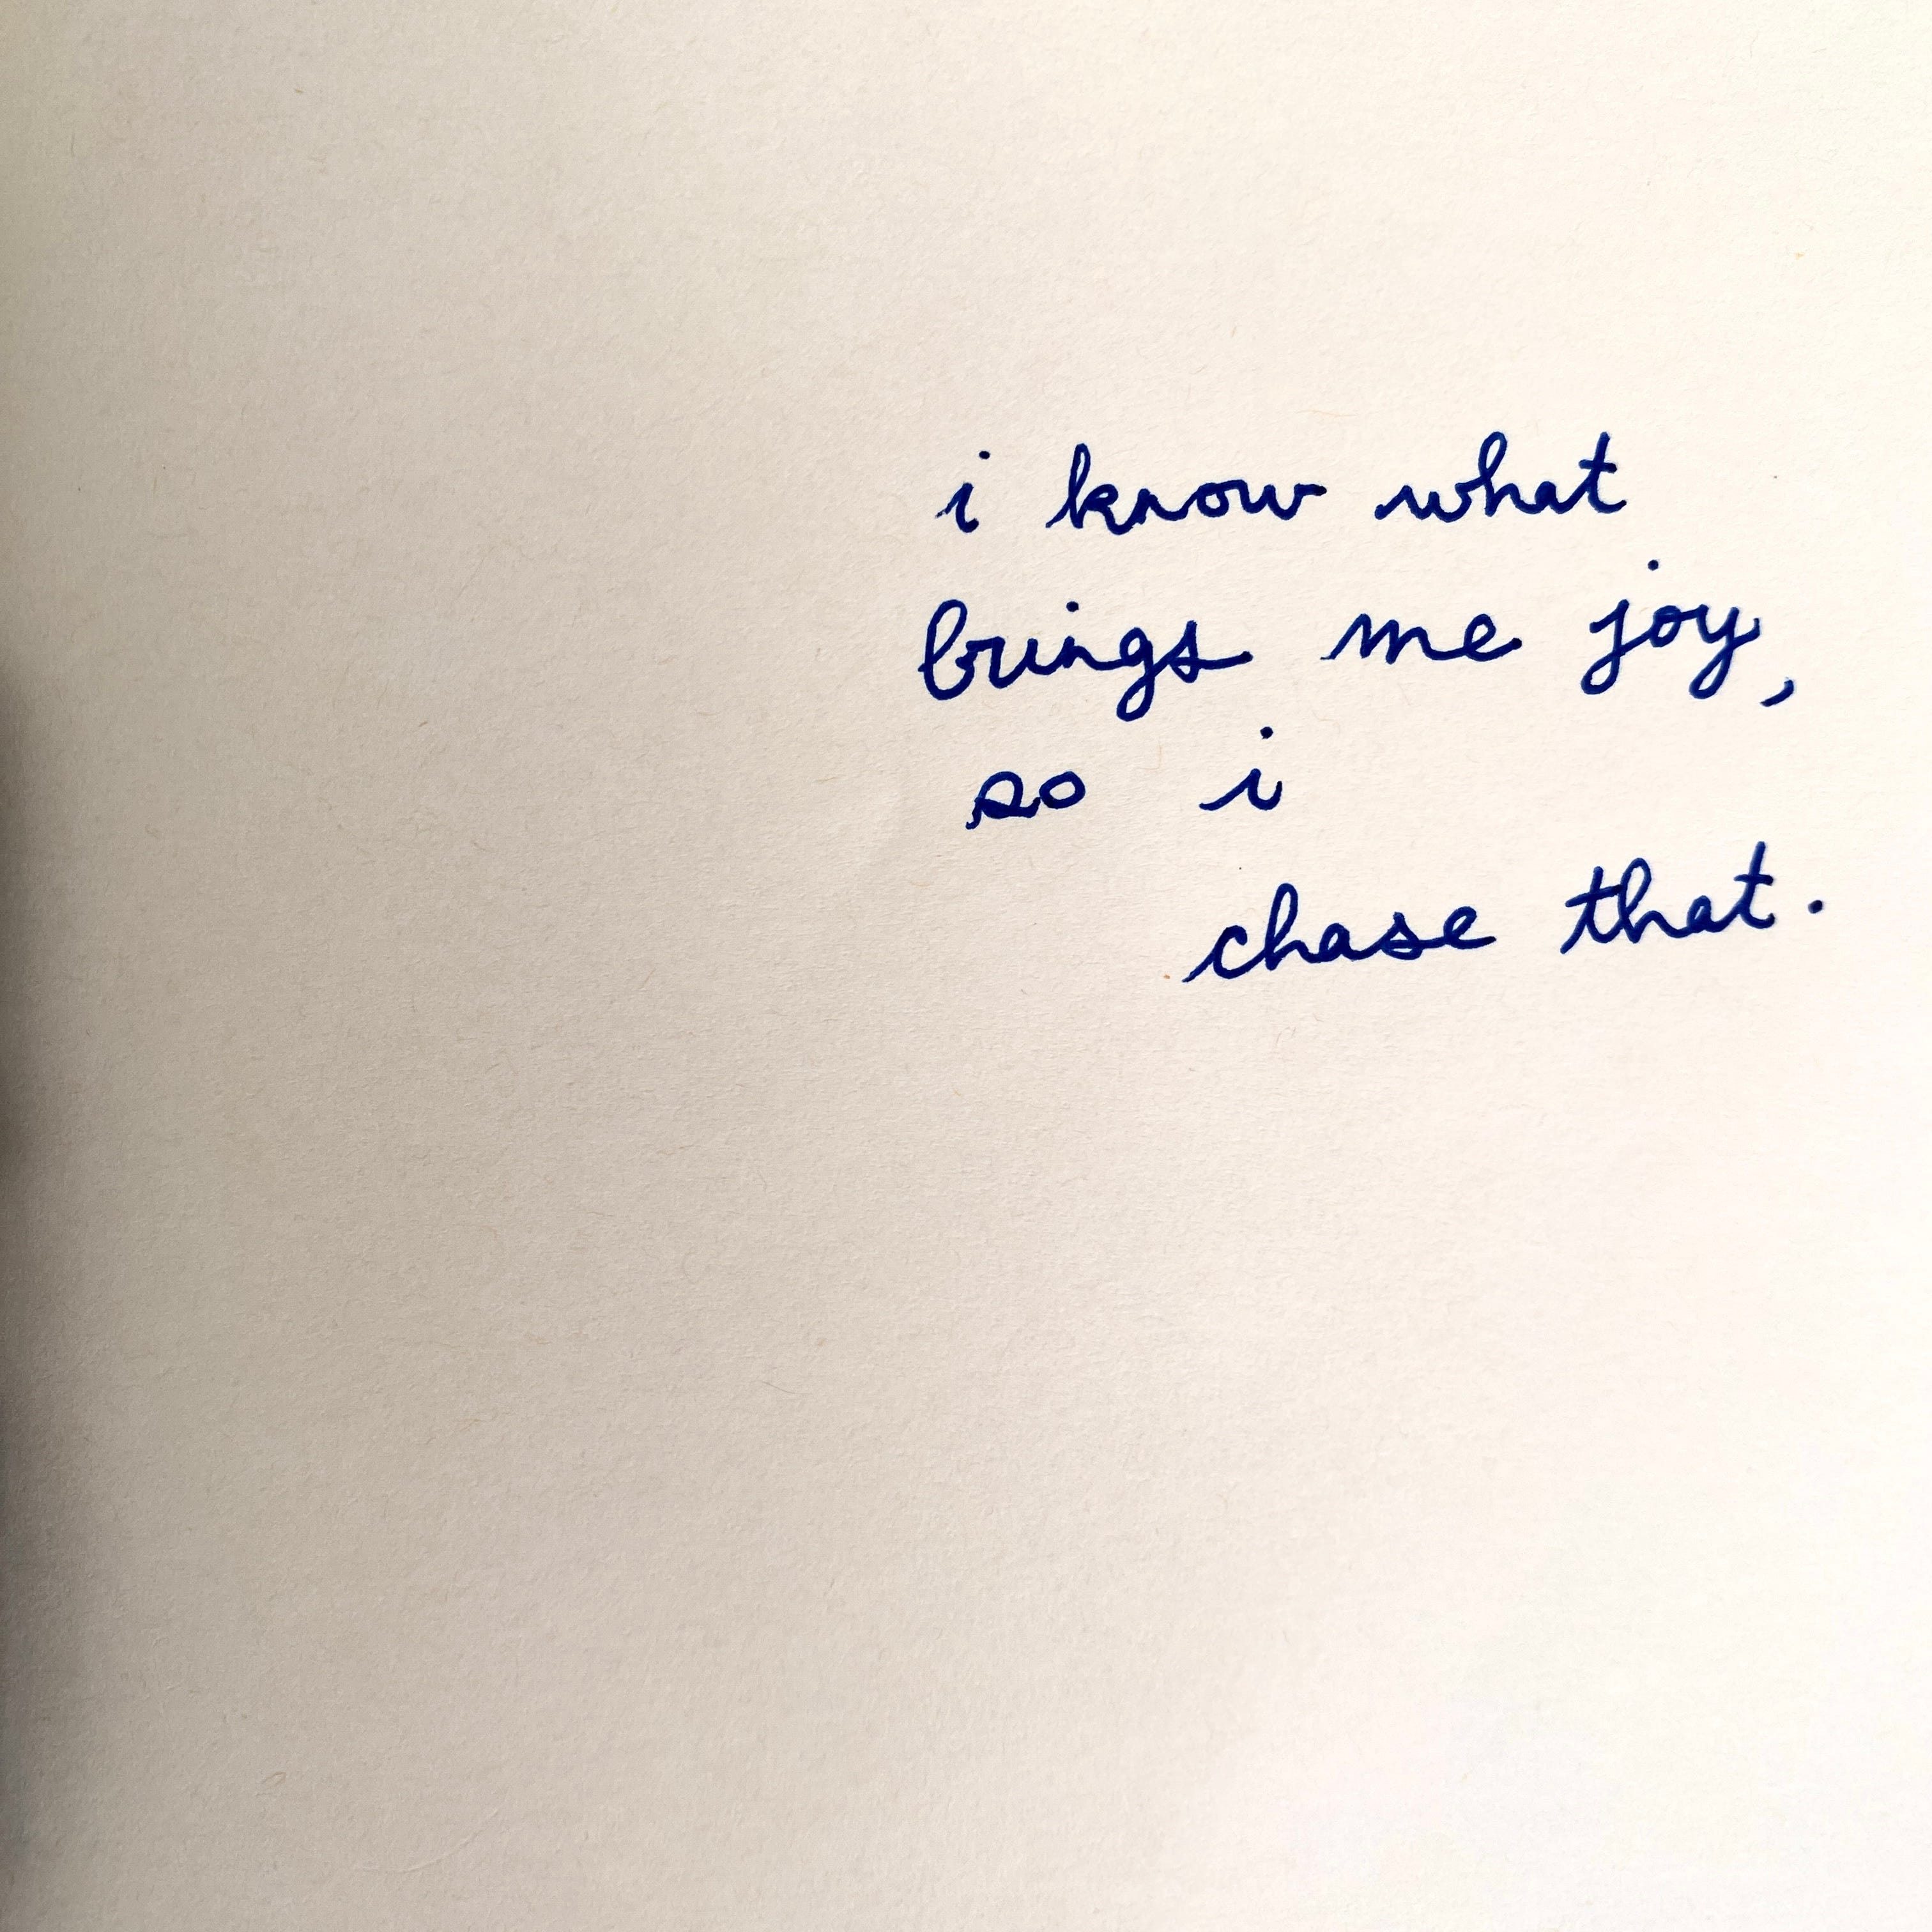 i know what
brings me joy,
so i
chase that.